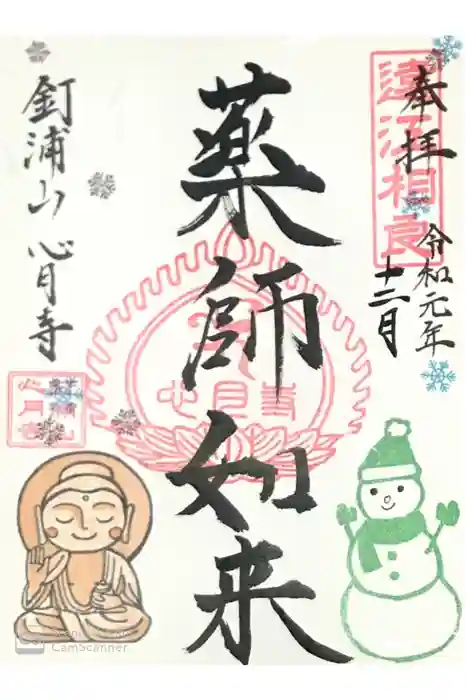 奉拝
遠江相良
令和元年
十二月
薬師如来
心月寺
釘浦山 心月寺
心月寺
CamScanner